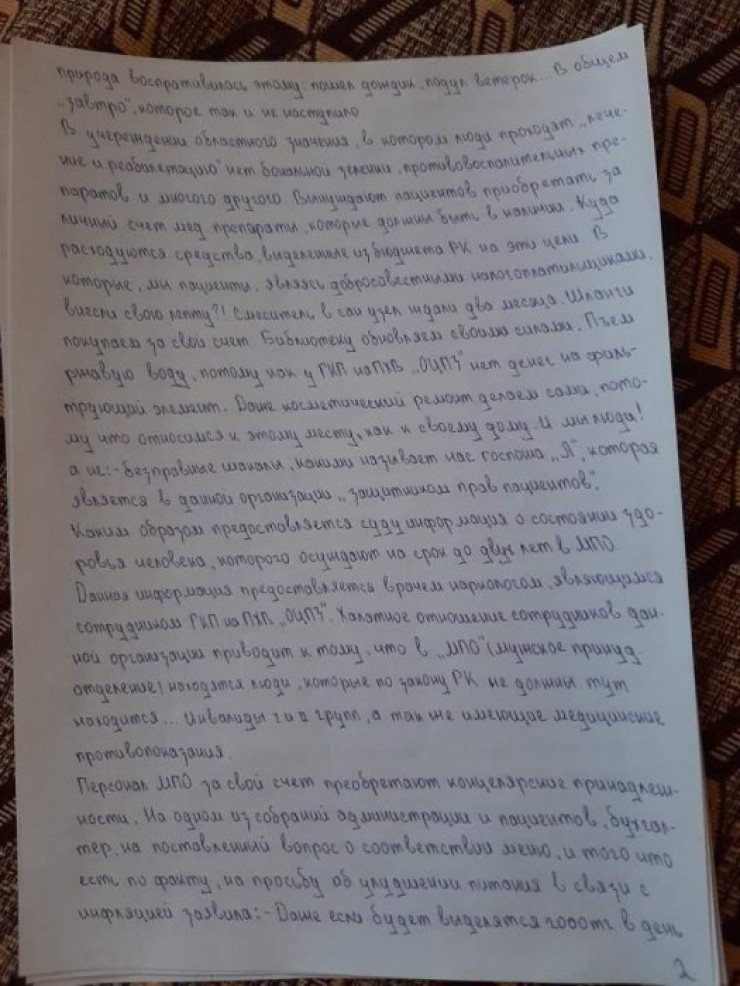 природа воспративилась этому: пошел дождик, подул ветерок... В общем
„завтро", которое так и не наступило
В учереждении областного значения, в котором люди проходят „лече-
ние и реабилетацию" нет банальной зеленки, противовоспалительных пре-
паратов и многого другого. Вынуждают пациентов приобретать за
личный счет мед препараты, которые должны быть в наличии. Куда
расходуются средства, выделенные из бюджета РК на эти цели. В
которые, мы пациенты, являясь добросовестными налогоплательщиками,
внесли свою лепту?! Смеситель в сан узел ждали два месяца. Шланги
покупаем за свой счет. Библиотеку обновляем своими силами. Пъем
ржавую воду, потому как у ГКП на ПХВ „ОЦПЗ" нет денег на филь-
трующий элемент. Даже косметический ремонт делаем сами, пото-
му что относимся к этому месту, как к своему дому. И мы люди!
а не:- безправные шакалы, какими называет нас госпожа „Я", которая
является в данной организации „защитником прав пациентов".
Каким образом предоставляется суду информация о состоянии здо-
ровья человека, которого осуждают на срок до двух лет в МПО
Данная информация предоставляется врачем наркологом, являющимся
сотрудником ГКП на ПХВ „ОЦПЗ". Халатное отношение сотрудников дан-
ной организации приводит к тому, что в „МПО" (мужское принуд
отделение) находятся люди, которые по закону РК не должны тут
находится... Инвалиды 1 и 2 групп, а так же имеющие медицинские
противопоказания.
Персонал МПО за свой счет преобретают концелярские принадлеж-
ности. На одном из собраний администрации и пациентов, бухгал-
тер, на поставленный вопрос о соответствии меню, и того что
есть по факту, на просьбу об улудшении питания в связи с
инфляцией заявила:- Даже если будет выделятся 2000тг в день
2